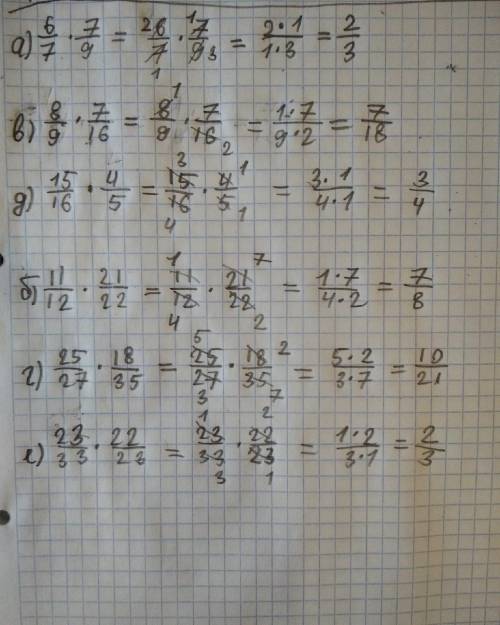 а) 6/7 · 7/9 = ²6/7₁ · ¹7/9₃ = 2·1/1·3 = 2/3
в) 8/9 · 7/16 = ¹8/9 · 7/16₂ = 1·7/9·2 = 7/18
д) 15/16 · 4/5 = ³15/16₄ · 4¹/5₁ = 3·1/4·1 = 3/4
б) 11/12 · 21/22 = ¹11/12₄ · 21⁷/22₂ = 1·7/4·2 = 7/8
г) 25/27 · 18/35 = ⁵25/27₃ · 18²/35₇ = 5·2/3·7 = 10/21
е) 23/33 · 22/23 = ¹23/33₃ · ²22/23₁ = 1·2/3·1 = 2/3